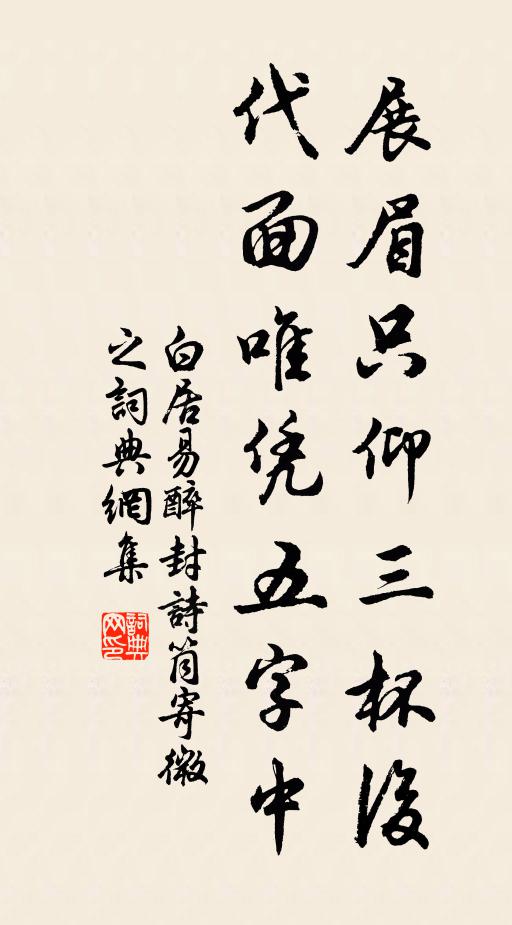 展眉只仰三杯後
代面唯凭五字中
白居易醉封詩筒寄微
之詞典網集
詞典
网印